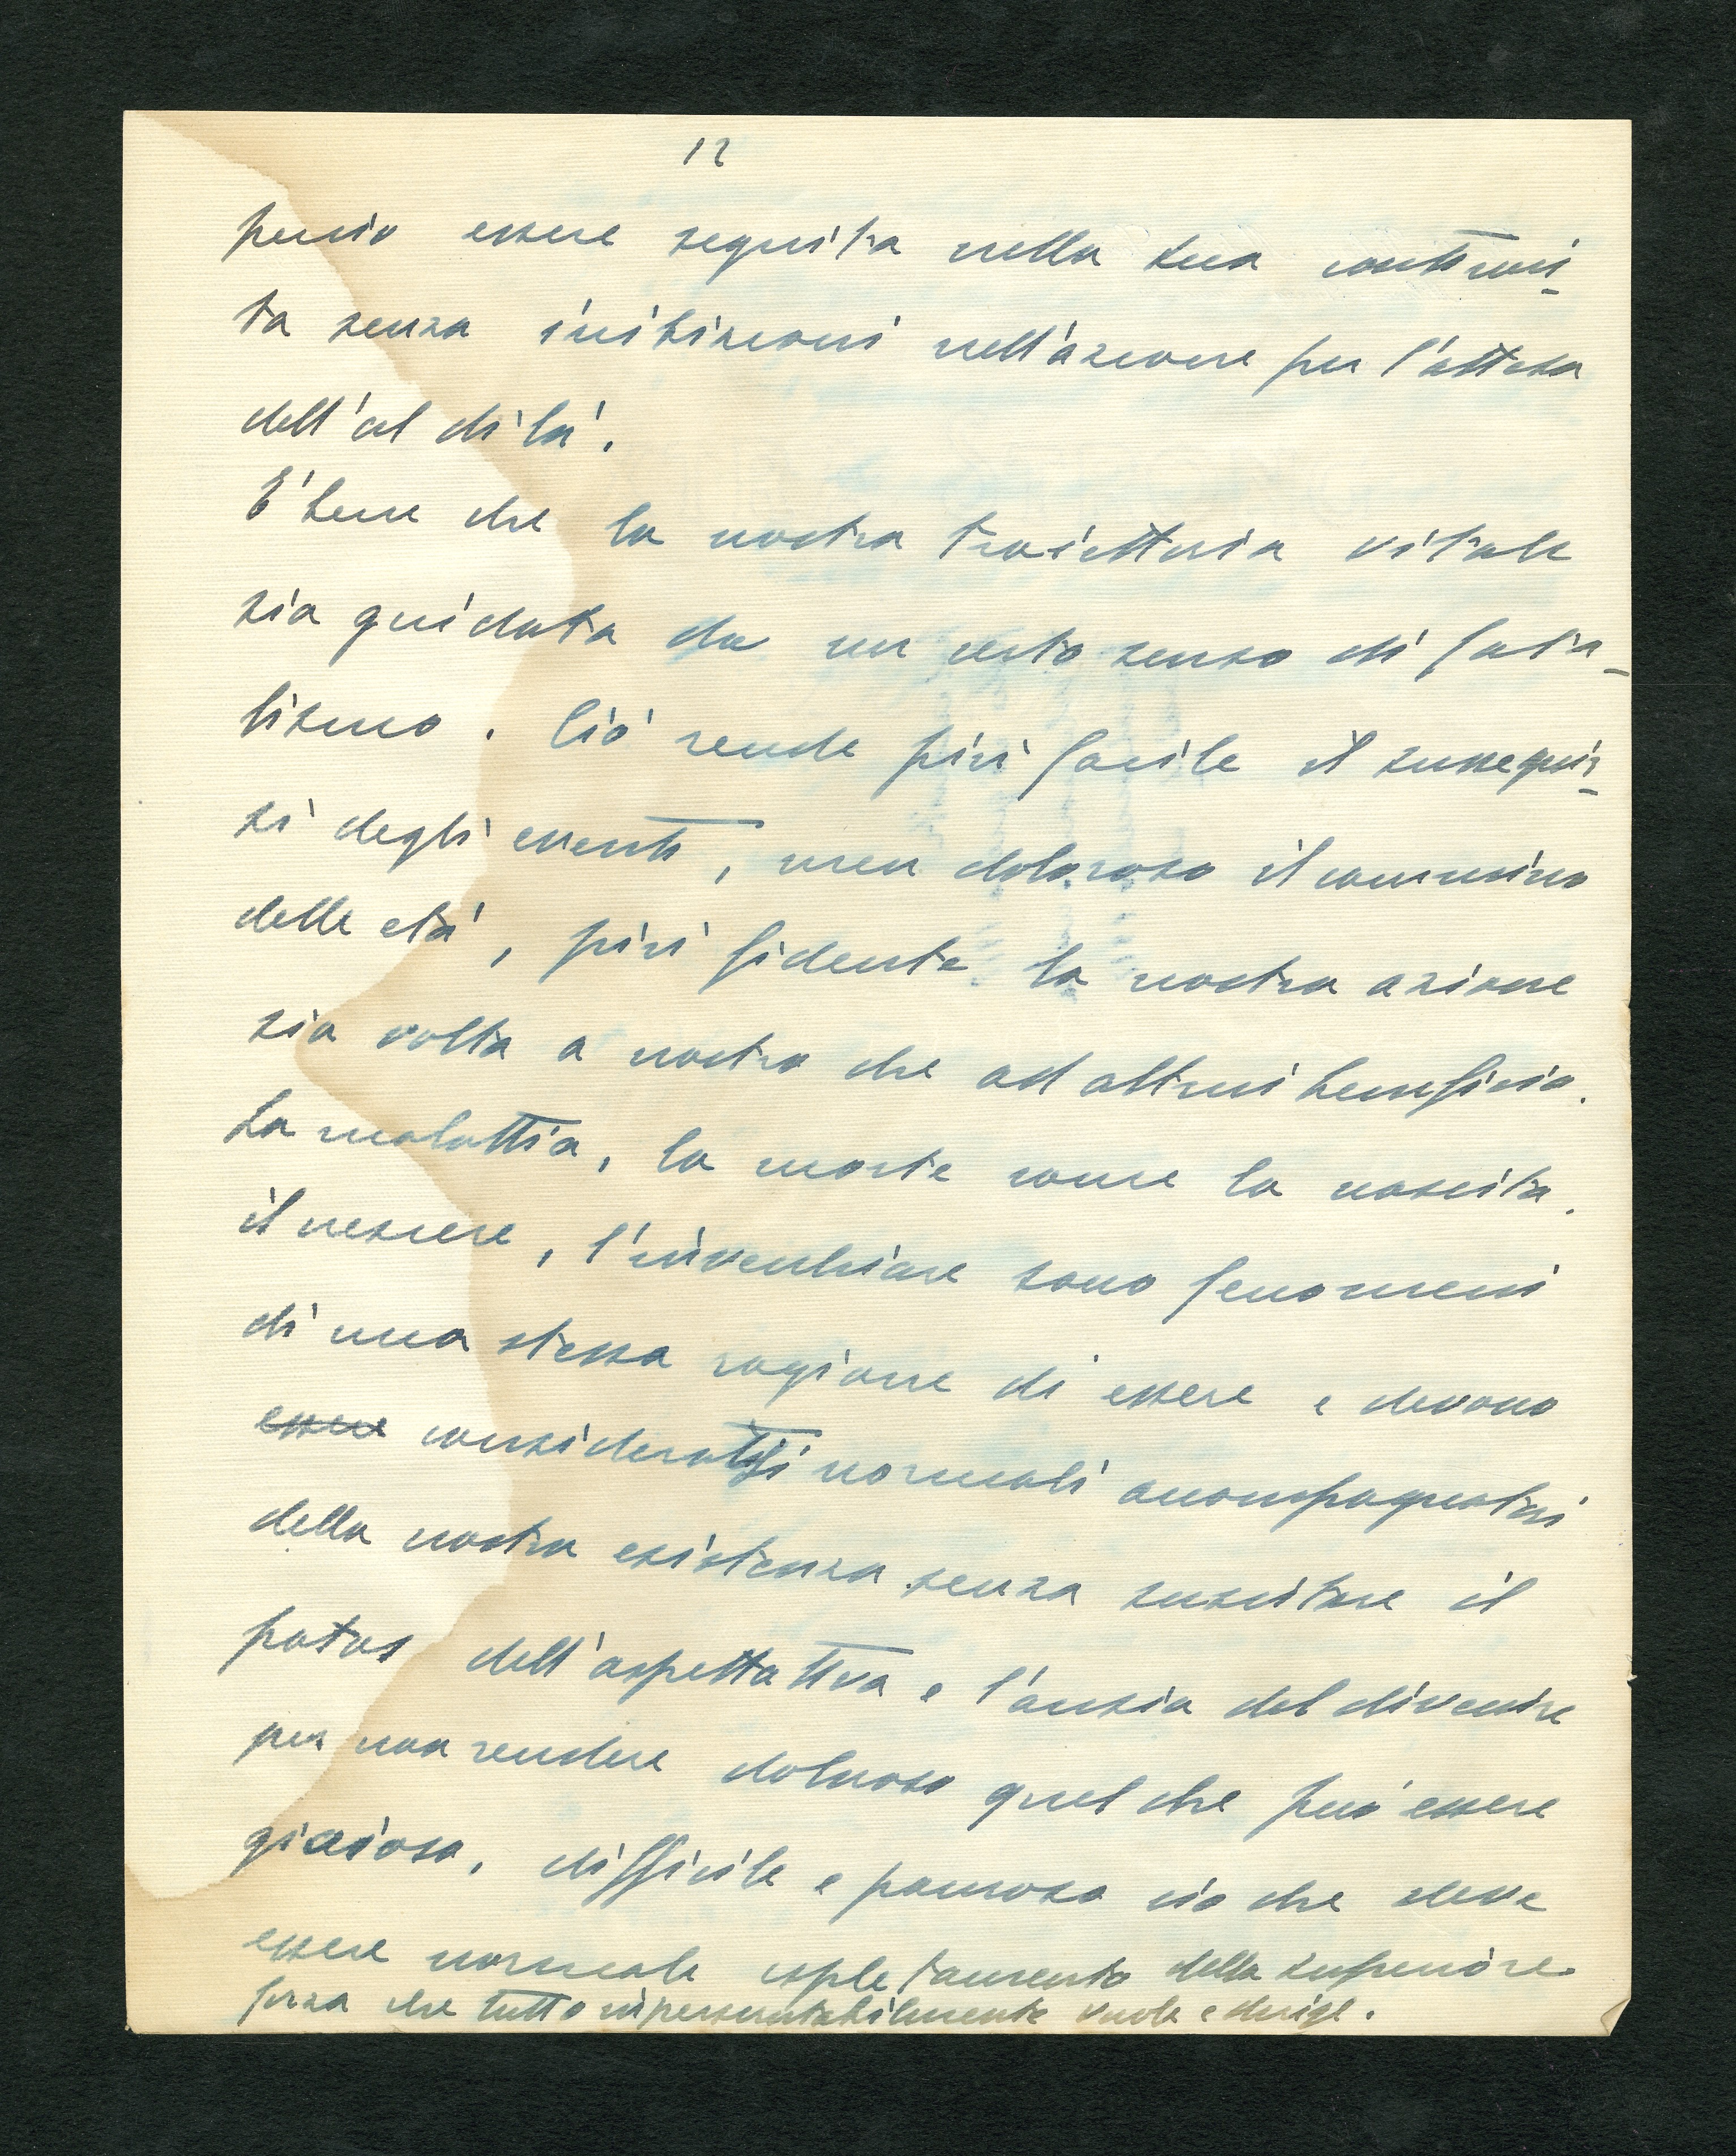 12
perciò essere seguita nella sua continui-
ta senza inibizioni nell'azione per l'attesa
dell'al di la'.
E' bene che la nostra traiettoria vitale
sia guidata da un certo senso di fata-
lismo. Ciò rende più facile il susseguir-
si degli eventi, men doloroso il cammino
delle età, più fidente la nostra azione
sia volta a nostro che ad altrui beneficio.
La malattia, la morte come la nascita,
il crescere, l'invecchiare sono fenomeni
di una stessa ragione di essere e devono
essere considerarsi normali accompagnatori
della nostra esistenza senza suscitare il
patos dell'aspettativa e l'ansia del divenire
per non rendere doloroso quel che può essere
gioioso, difficile e pauroso ciò che deve
essere normale espletamento della superiore
forza che tutto imperscrutabilmente vuole e dirige.